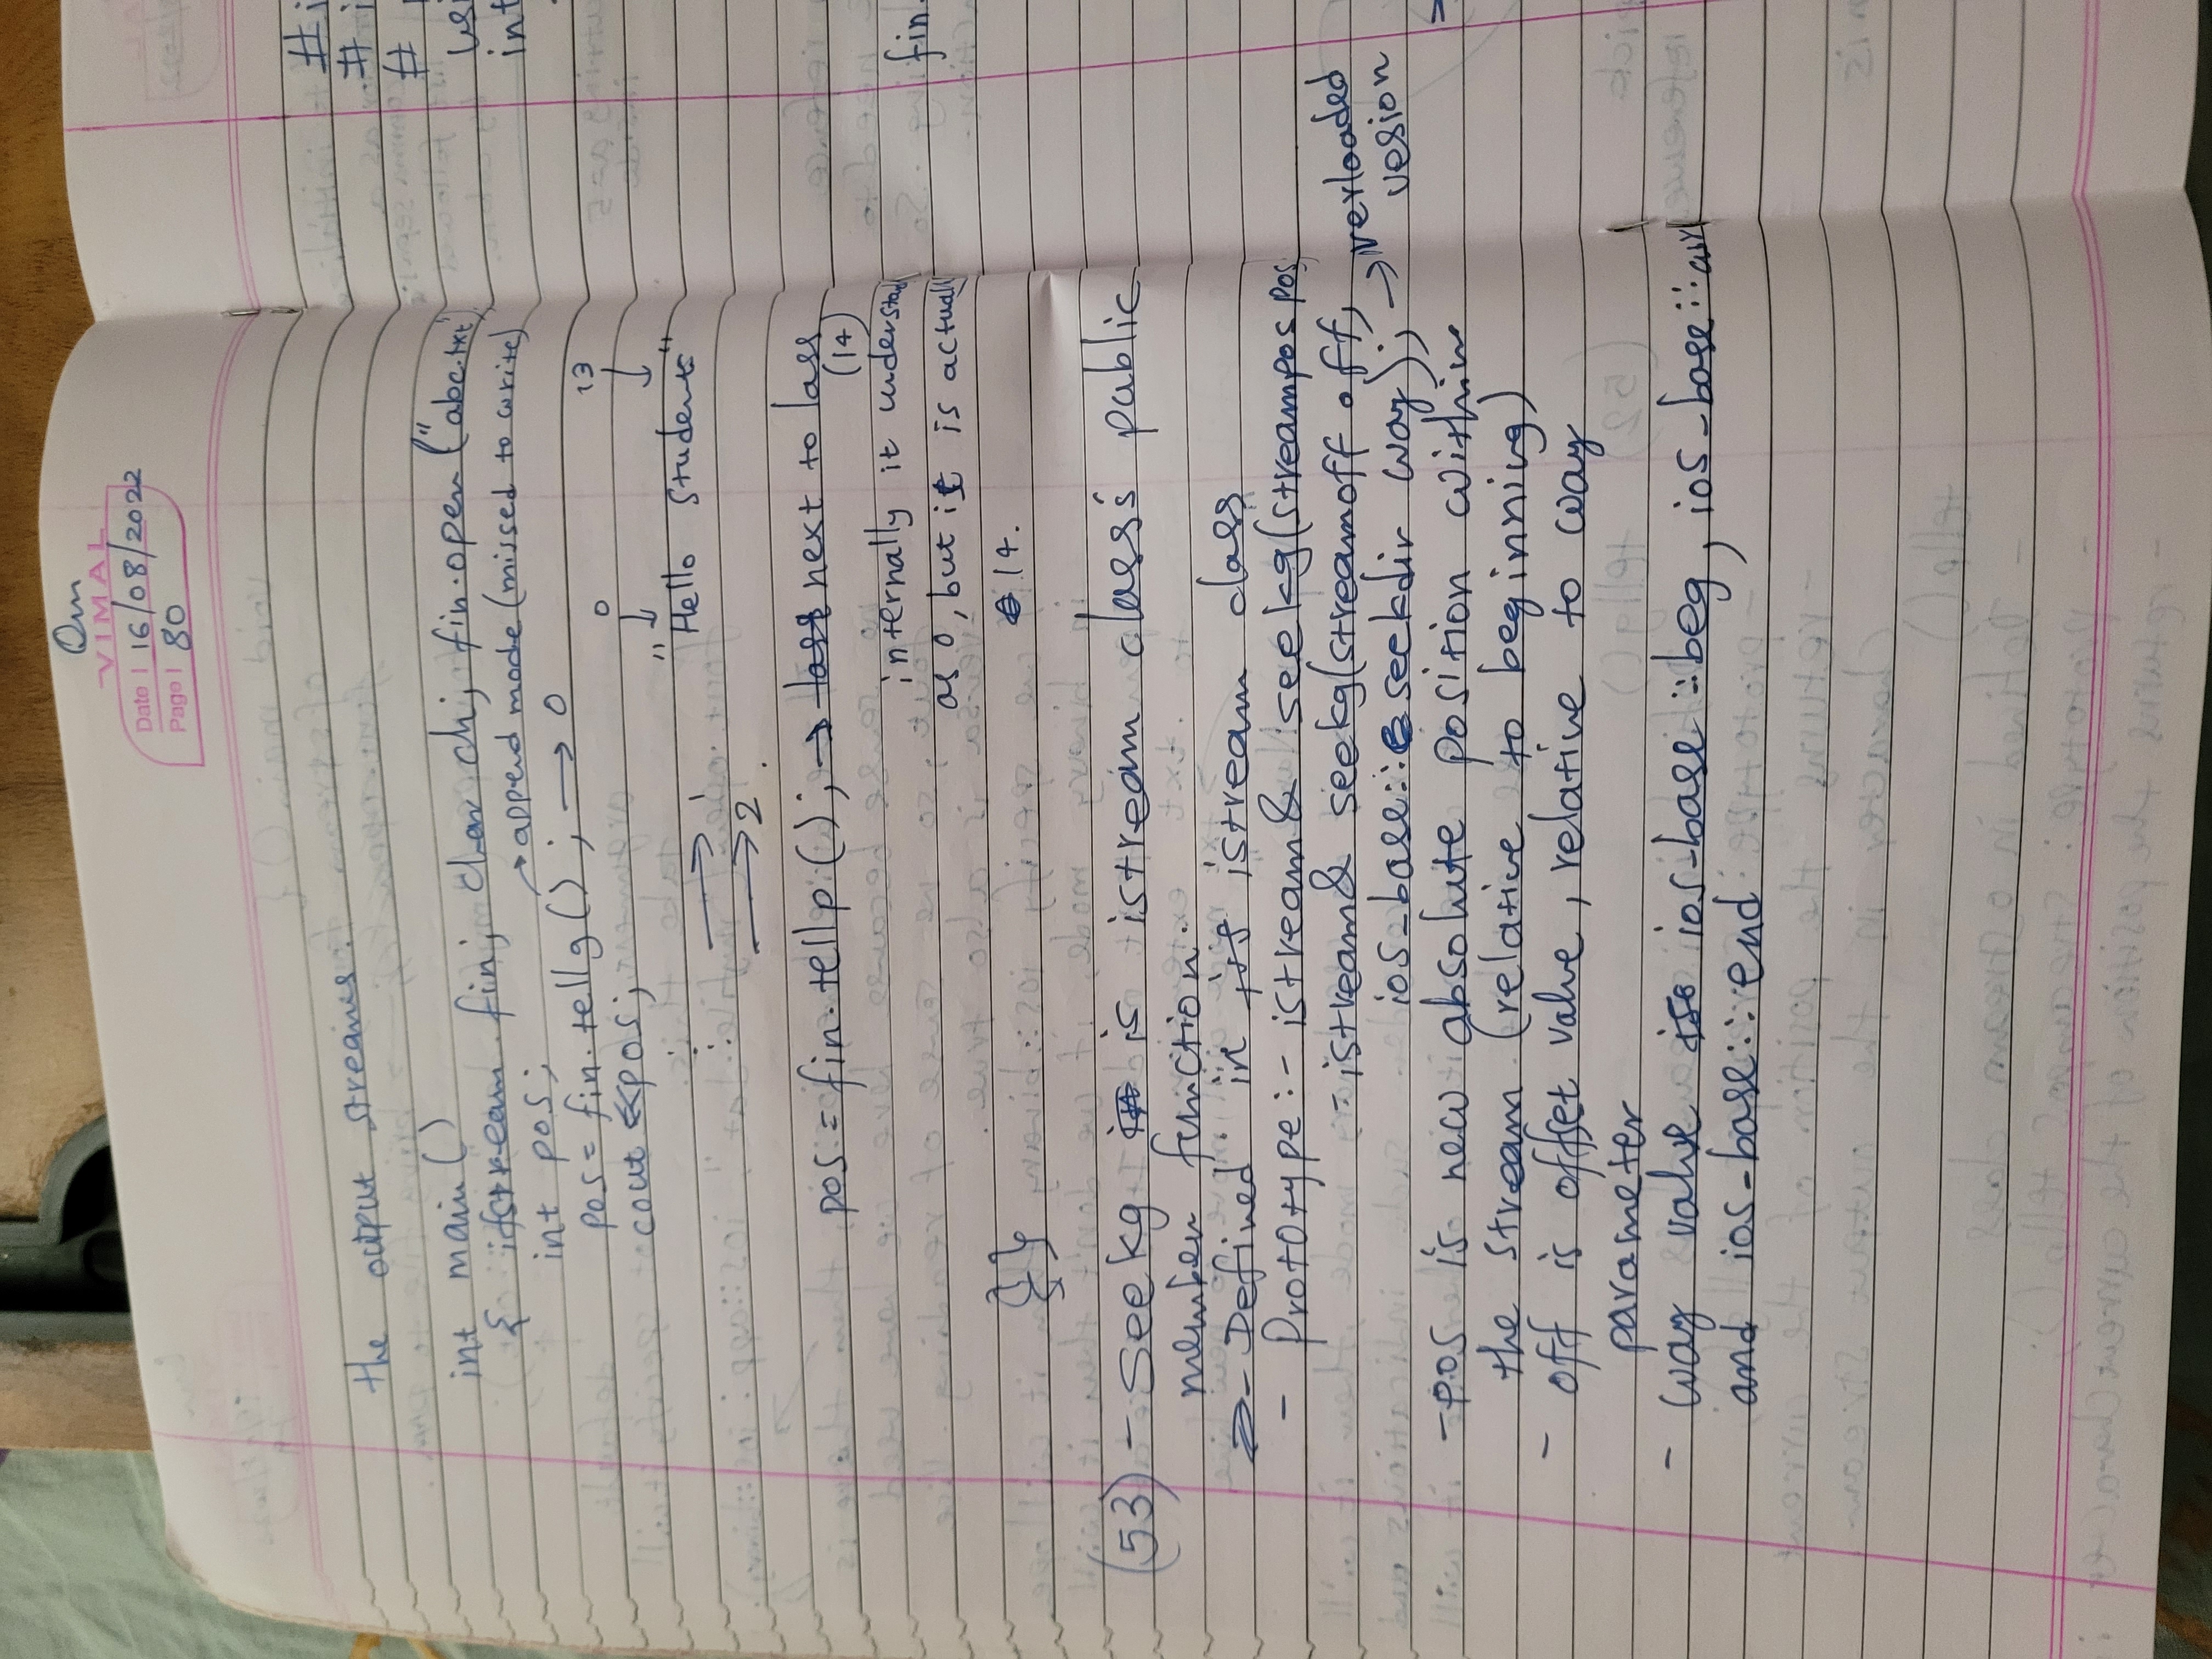 Om
VIMAL
Date | 16/08/2022
Page | 80
the output streams.
int main()
{ ifstream fin; char ch; fin.open("abc.txt")
→append mode (missed to write)
int pos;
pos = fin.tellg(); → 0
cout <<pos;
0 13
↓ ↓
"Hello Students"
→ 1
→ 2
pos = fin.tellp(); → last next to lass
(14)
internally it understand
as 0, but it is actually
14.
}
(53) - seekg in is istream class's public
member function.
- Defined in istream class
- Prototype:- istream& seekg(streampos pos
- istream& seekg(streamoff off,
ios-base::seekdir way); → verloaded
vesion
- pos is new absolute position within
the stream (relative to beginning)
- off is offset value, relative to way
parameter
- way value ios-base::beg, ios-base::cur
and ios-base::end
# i
# i
#
int
fin.